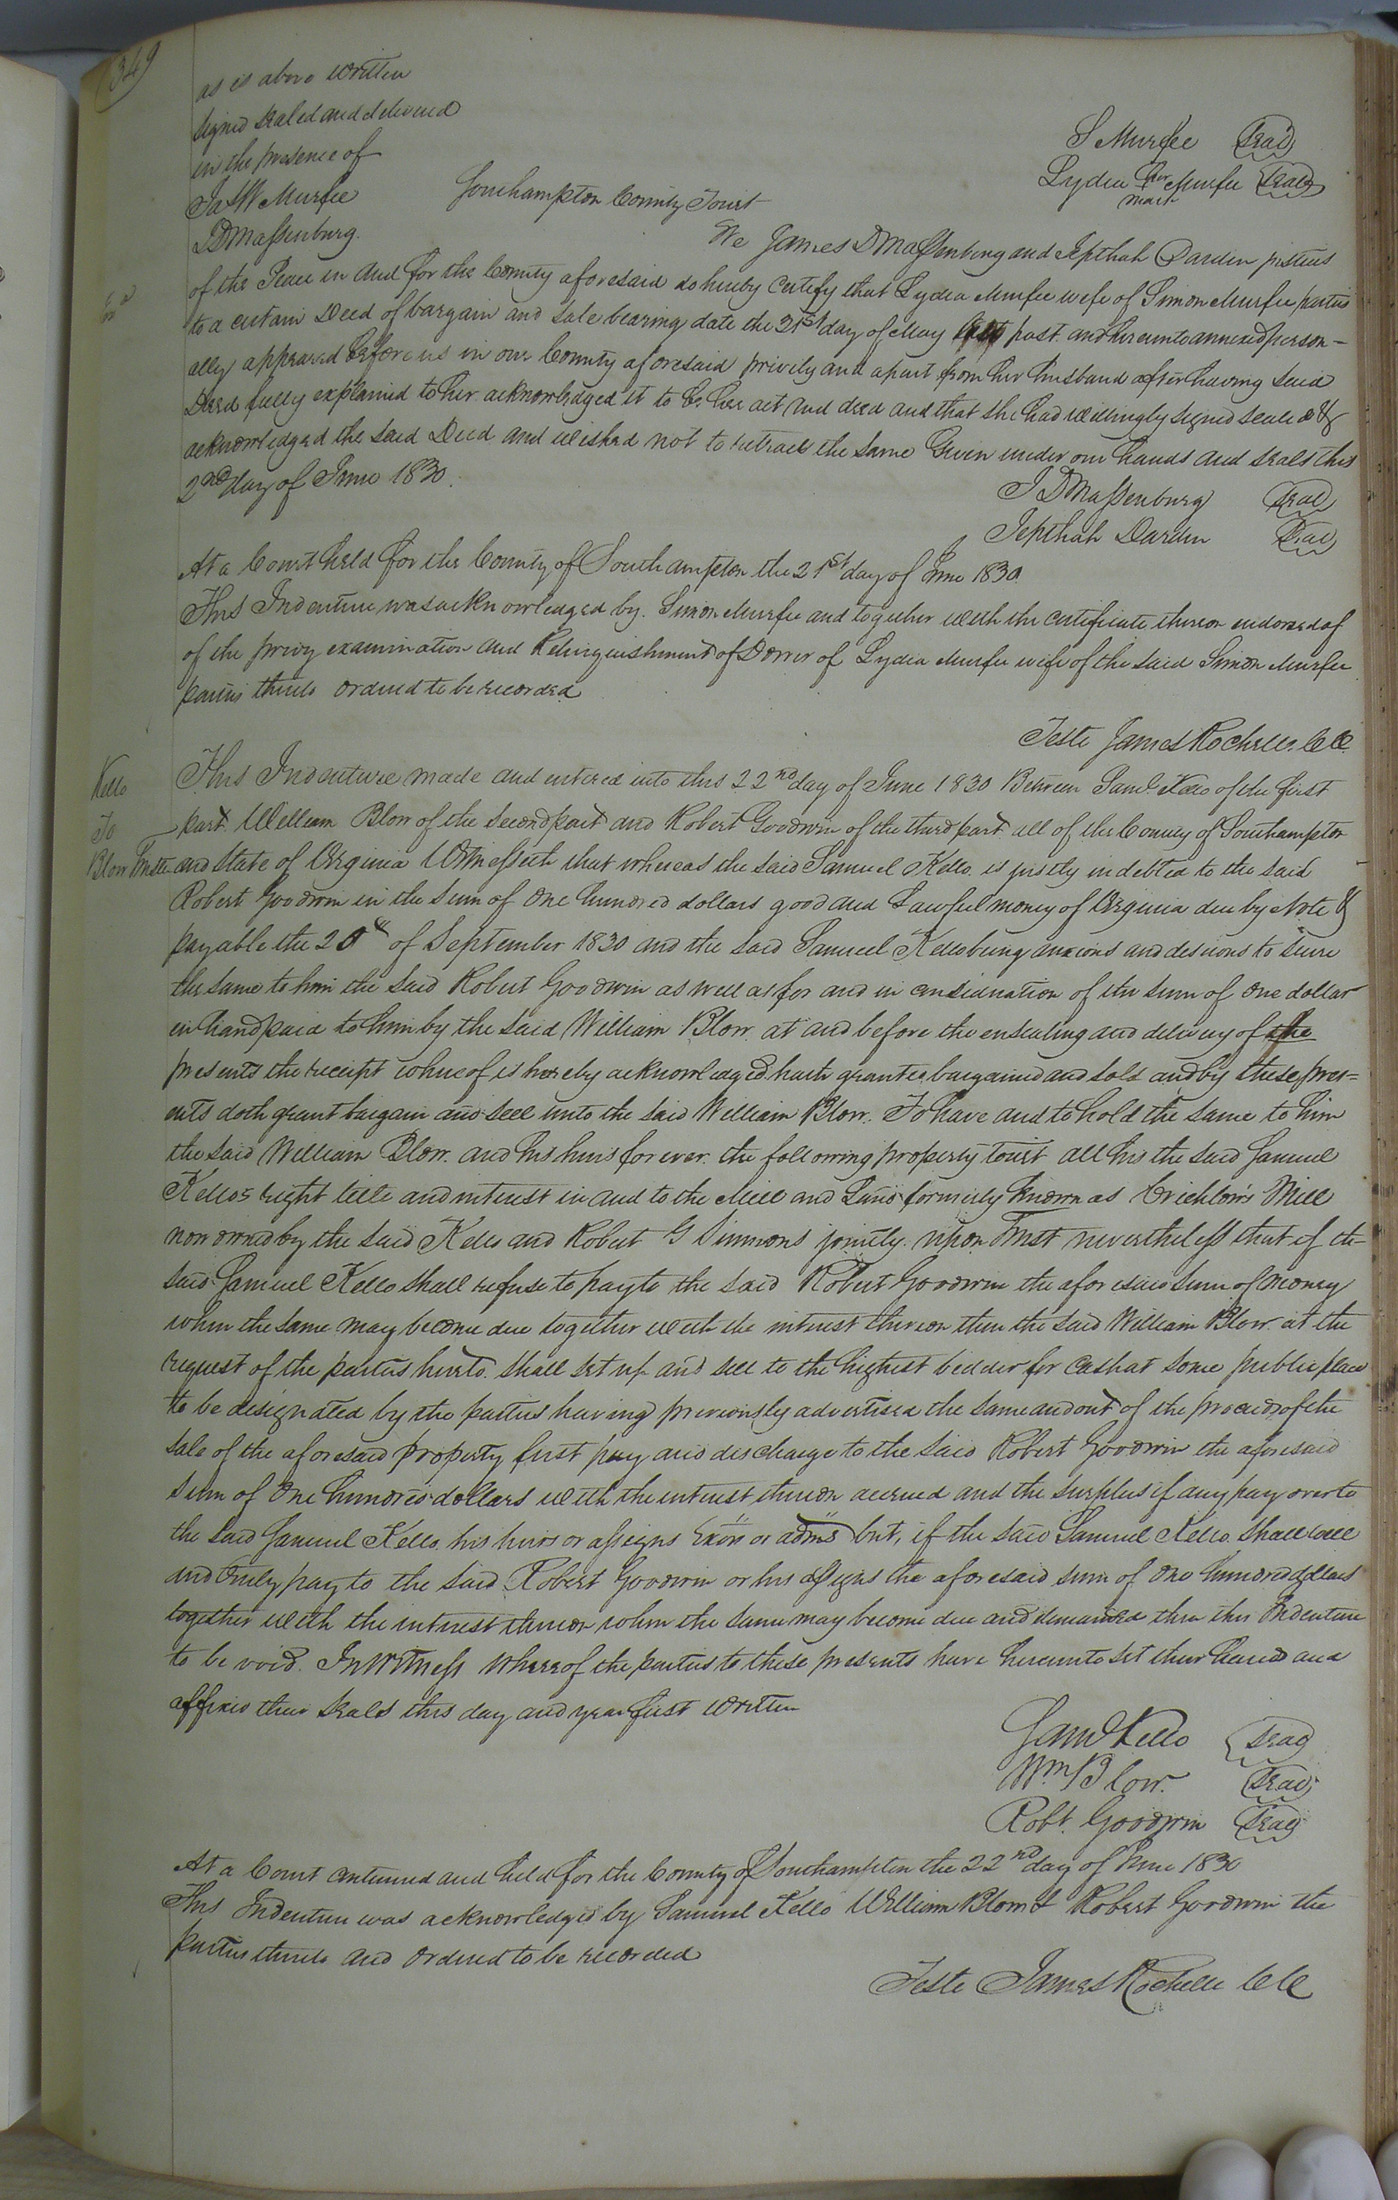 349
as is above written
signed sealed and delivered
in the presence of
S Murfee Seal
Lydia her Murfee Seal
mark
Jas W Murfee
Southampton County Towit
J D Massenburg.
We James D Massenburg and Jepthah Darden justices
of the Peace in and for the County aforesaid do hereby certify that Lydia Murfee wife of Simon Murfee parties
to a certain Deed of bargain and sale bearing date the 31st day of May last past and hereunto annexed person-
ally appeared before us in our County aforesaid privily and apart from her husband after having said
Deed fully explained to her acknowledged it to be her act and deed and that she had willingly signed seale d &
acknowledged the said Deed and wished not to retract the same Given under our hands and seals this
2nd day of June 1830.
J D Massenburg Seal
Jepthah Darden Seal
At a Court held for the County of Southampton the 21st day of June 1830.
This Indenture was acknowledged by Simon Murfee and together with the certificate thereon endorsed of
of the privy examination and Relinquishment of Dower of Lydia Murfee wife of the said Simon Murfee
parties thereto ordered to be recorded
Teste James Rochelle CC
Kello
To
Blow Trustee
This Indenture made and entered into this 22nd day of June 1830 Between Saml Kello of the first
part William Blow of the second part and Robert Goodwin of the third part all of the County of Southampton
and State of Virginia Witnesseth that whereas the said Samuel Kello is justly indebted to the said
Robert Goodwin in the sum of One hundred dollars good and Lawful money of Virginia due by Note &
payable the 20th of September 1830 and the said Samuel Kello being anxious and desirous to secure
the same to him the said Robert Goodwin as well as for and in consideration of the sum of one dollar
in hand paid to him by the said William Blow at and before the ensealing and delivery of the
presents the receipt whereof is hereby acknowledged hath granted bargained and sold and by these pres=
ents doth grant bargain and sell unto the said William Blow. To have and to hold the same to him
the said William Blow and his heirs forever the following property towit all his the said Samuel
Kello's right title and interest in and to the Mill and Land formerly known as Crichlow's Mill
now owned by the said Kello and Robert G Simmons jointly upon Trust nevertheless that if the
said Samuel Kello shall refuse to pay to the said Robert Goodwin the aforesaid sum of money
when the same may become due together with the interest thereon then the said William Blow at the
request of the parties hereto shall set up and sell to the highest bidder for cash at some public place
to be designated by the parties having previously advertised the same and out of the proceeds of the
sale of the aforesaid property first pay and discharge to the said Robert Goodwin the aforesaid
sum of One hundred dollars with the interest thereon accrued and the surplus if any pay over to
the said Samuel Kello his heirs or assigns Exors or admrs but, if the said Samuel Kello shall well
and truly pay to the said Robert Goodwin or his assigns the aforesaid sum of One hundred dollars
together with the interest thereon when the same may become due and demanded then this Indenture
to be void. In Witness whereof the parties to these presents have hereunto set their hands and
affixed their seals this day and year first written
Saml Kello Seal
Wm Blow Seal
Robt. Goodwin Seal
At a Court continued and held for the County of Southampton the 22nd day of June 1830
This Indenture was acknowledged by Samuel Kello William Blow & Robert Goodwin the
parties thereto and Ordered to be recorded
Teste James Rochelle CC